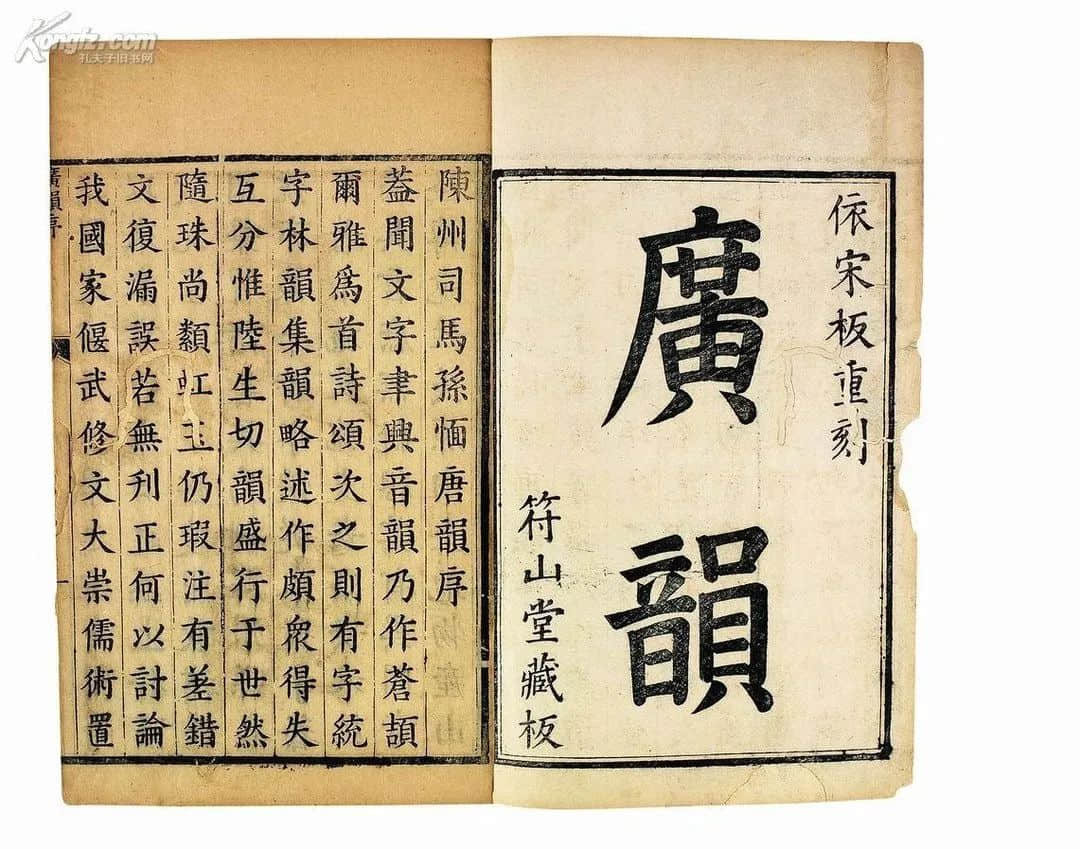 依宋板重刻
廣韻
符山堂藏板
陳州司馬孫愐唐韻序
蓋聞文字聿興音韻乃作蒼頡
爾雅爲首詩頌次之則有字統
字林韻集韻略述作頗衆得失
互分惟陸生切韻盛行于世然
隨珠尚纇虹玉仍瑕注有差錯
文復漏誤若無刋正何以討論
我國家偃武修文大崇儒術置
廣韻序
一
Kongfz.com
孔夫子旧书网